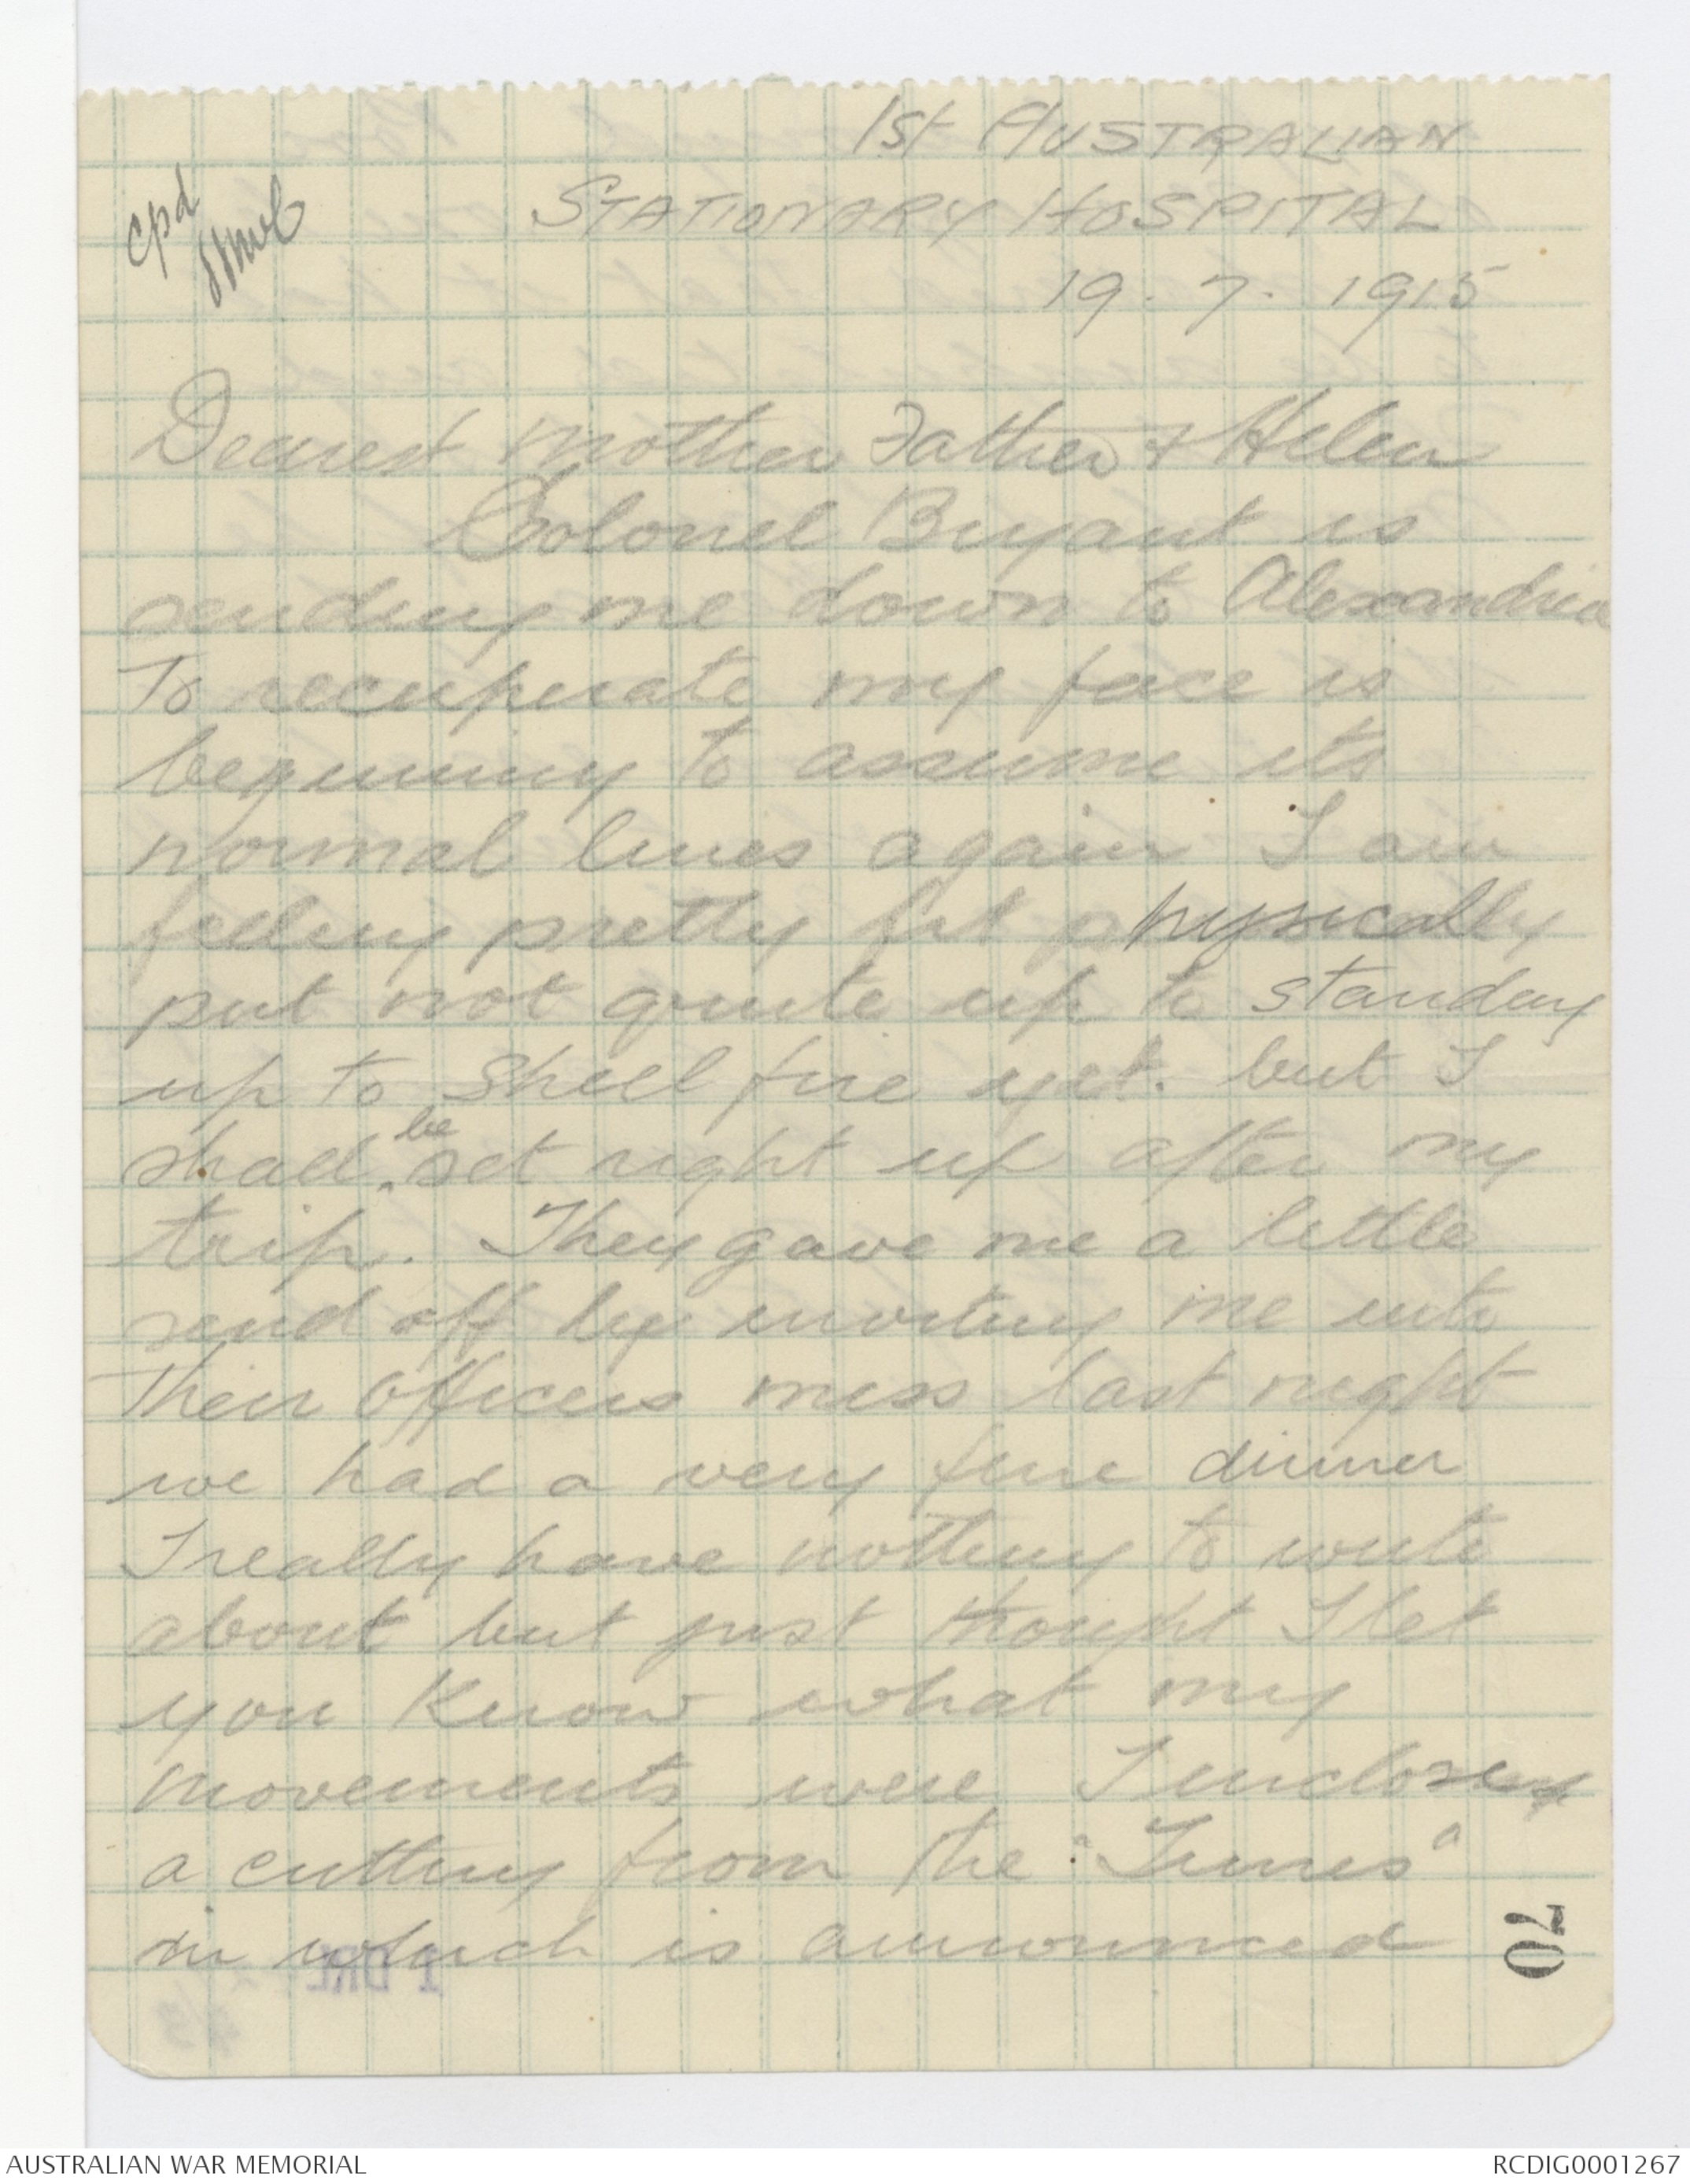 1st AUSTRALIAN
STATIONARY HOSPITAL
19. 7. 1915
cpd
Dearest Mother Father & Helen
Colonel Bryant is
sending me down to Alexandria
To recuperate my face is
beginning to assume its
normal lines again I am
feeling pretty fit physically
put not quite up to standing
up to shell fire yet. but I
shall be set right up after my
trip. They gave me a little
send off by inviting me into
their officers mess last night
we had a very fine dinner
I really have nothing to write
about but just thought I let
you know what my
movements were I enclose
a cutting from the "Times"
in which is announced
70
1 DRL
AUSTRALIAN WAR MEMORIAL
RCDIG0001267